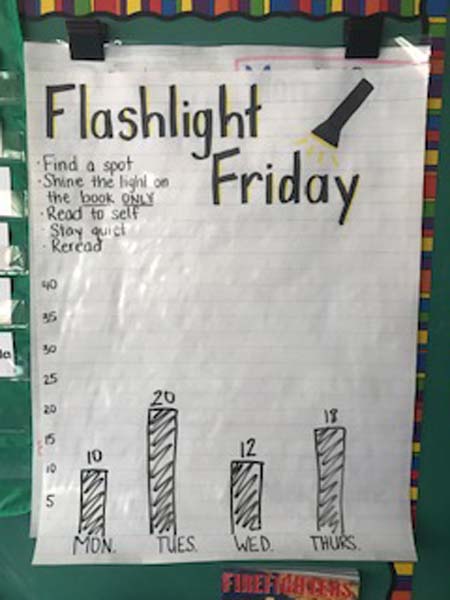 Flashlight
Friday
· Find a spot
· Shine the light on
the book ONLY
· Read to self
· Stay quiet
· Reread
40
35
30
25
20
15
10
5
10
20
12
18
MON. TUES. WED. THURS.
FIREFIGHTERS